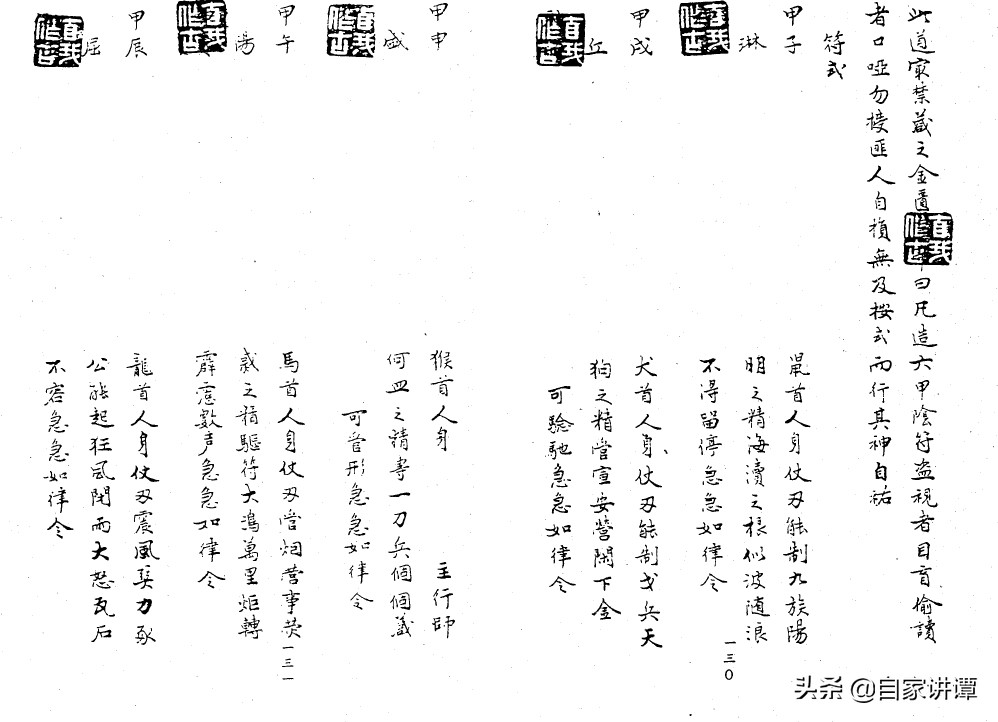 此道家禁藏之金匱曰凡造六甲陰符盗視者目盲偷讀
者口啞勿接匪人自損無及按式而行其神自祐
符式
甲子
琳
鼠首人身仗刃能制九族陽
明之精海瀆之根似波随浪
不得留停急急如律令
甲戌
丘
犬首人身仗刃能制戈兵天
狗之精営宣安營閑下金
可驗馳急急如律令
一三〇
甲申
盛
猴首人身 主行師
何皿之請寄一刀兵個個蔵
可啓形急急如律令
甲午
陽
馬首人身仗刃當烟營事
之精驅符大鴻萬里炬轉
霹靂數声急急如律令
一三一
甲辰
屈
龍首人身仗刃震風奚力
公能起狂風閉而大怒瓦石
不容急急如律令
直我作古
直我作古
直我作古
直我作古
直我作古
直我作古
头条 @自家讲谭